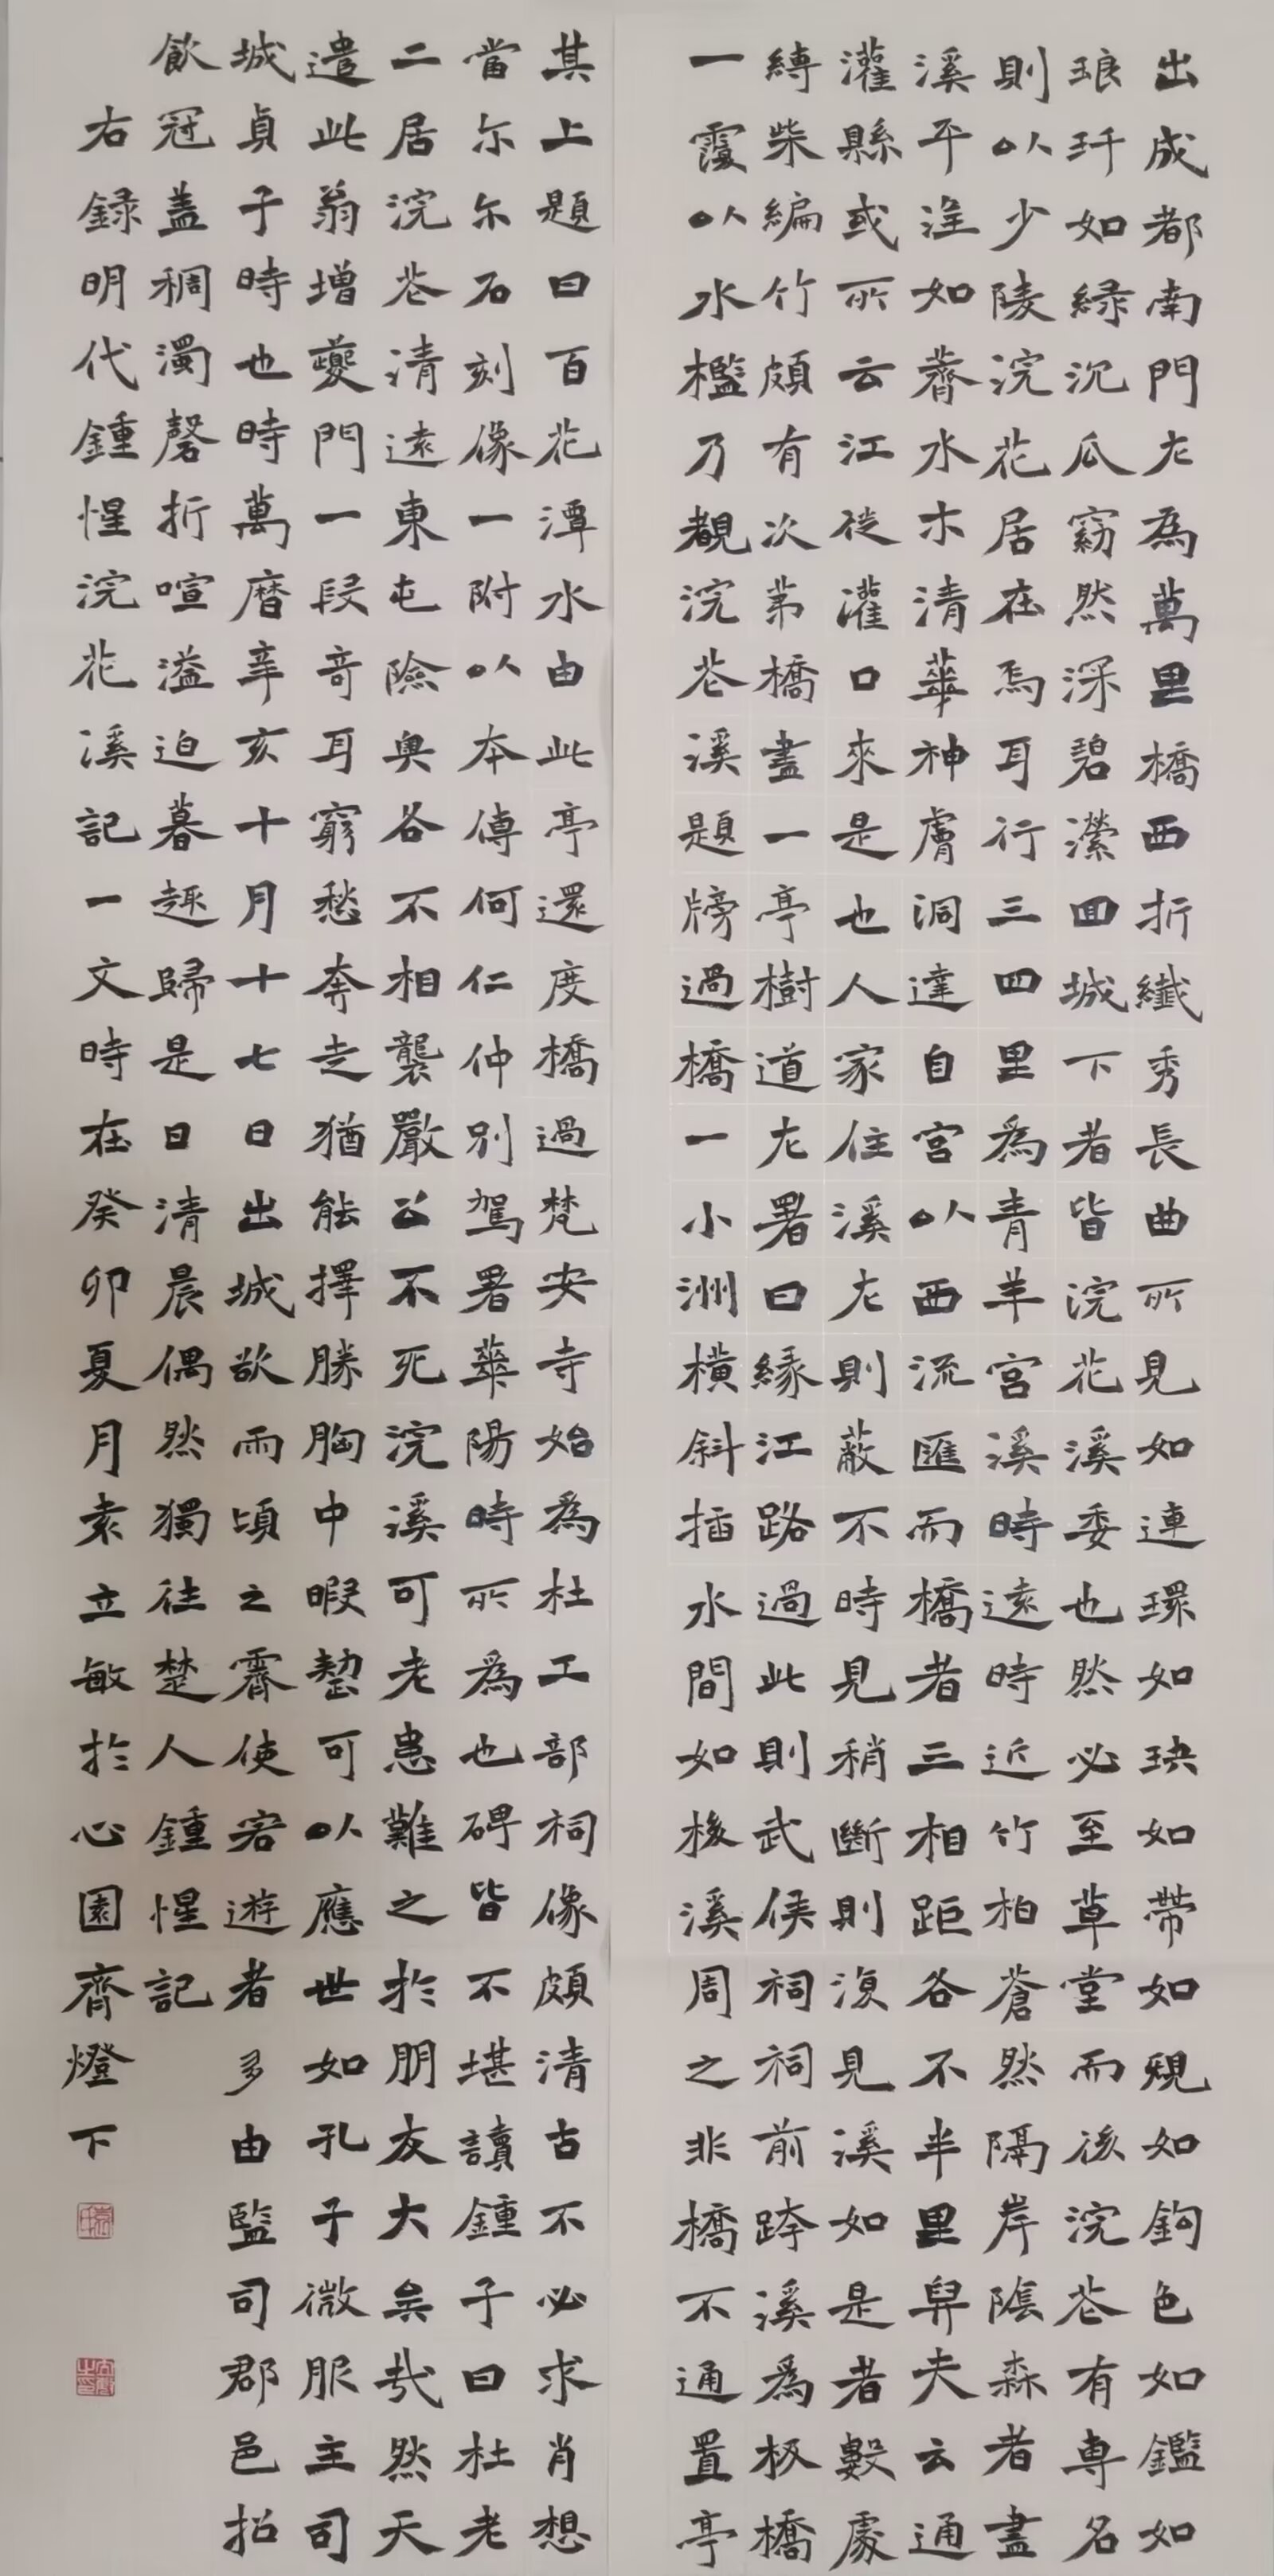 出成都南門左為萬里橋西折纖秀長曲所見如連環如玦如帶如規如鉤色如鑑如
琅玕如緑沉瓜窈然深碧瀠回城下者皆浣花溪委也然必至草堂而後浣花有專名
則以少陵浣花居在焉耳行三四里為青羊宮溪時遠時近竹柏蒼然隔岸陰森者盡
溪平望如薺水木清華神膚洞達自宮以西流匯而橋者三相距各不半里舁夫云通
灌縣或所云江從灌口來是也人家住溪左則蔽不時見稍斷則復見溪如是者數處
縛柴編竹頗有次第橋盡一亭樹道左署曰緣江路過此則武侯祠祠前跨溪為板橋
一覆以水檻乃覩浣花溪題牓過橋一小洲橫斜插水間如梭溪周之非橋不通置亭
其上題曰百花潭水由此亭還度橋過梵安寺始為杜工部祠像頗清古不必求肖想
當尔尔石刻像一附以本傳何仁仲別駕署華陽時所為也碑皆不堪讀鍾子曰杜老
二居浣花清遠東屯險奧各不相襲嚴公不死浣溪可老患難之於朋友大矣哉然天
遣此翁增夔門一段奇耳窮愁奔走猶能擇勝胸中暇整可以應世如孔子微服主司
城貞子時也時萬曆辛亥十月十七日出城欲雨頃之霽使客遊者多由監司郡邑招
飲冠蓋稠濁磬折喧溢迫暮趣歸是日清晨偶然獨往楚人鍾惺記
右録明代鍾惺浣花溪記一文時在癸卯夏月袁立敏於心園齊燈下